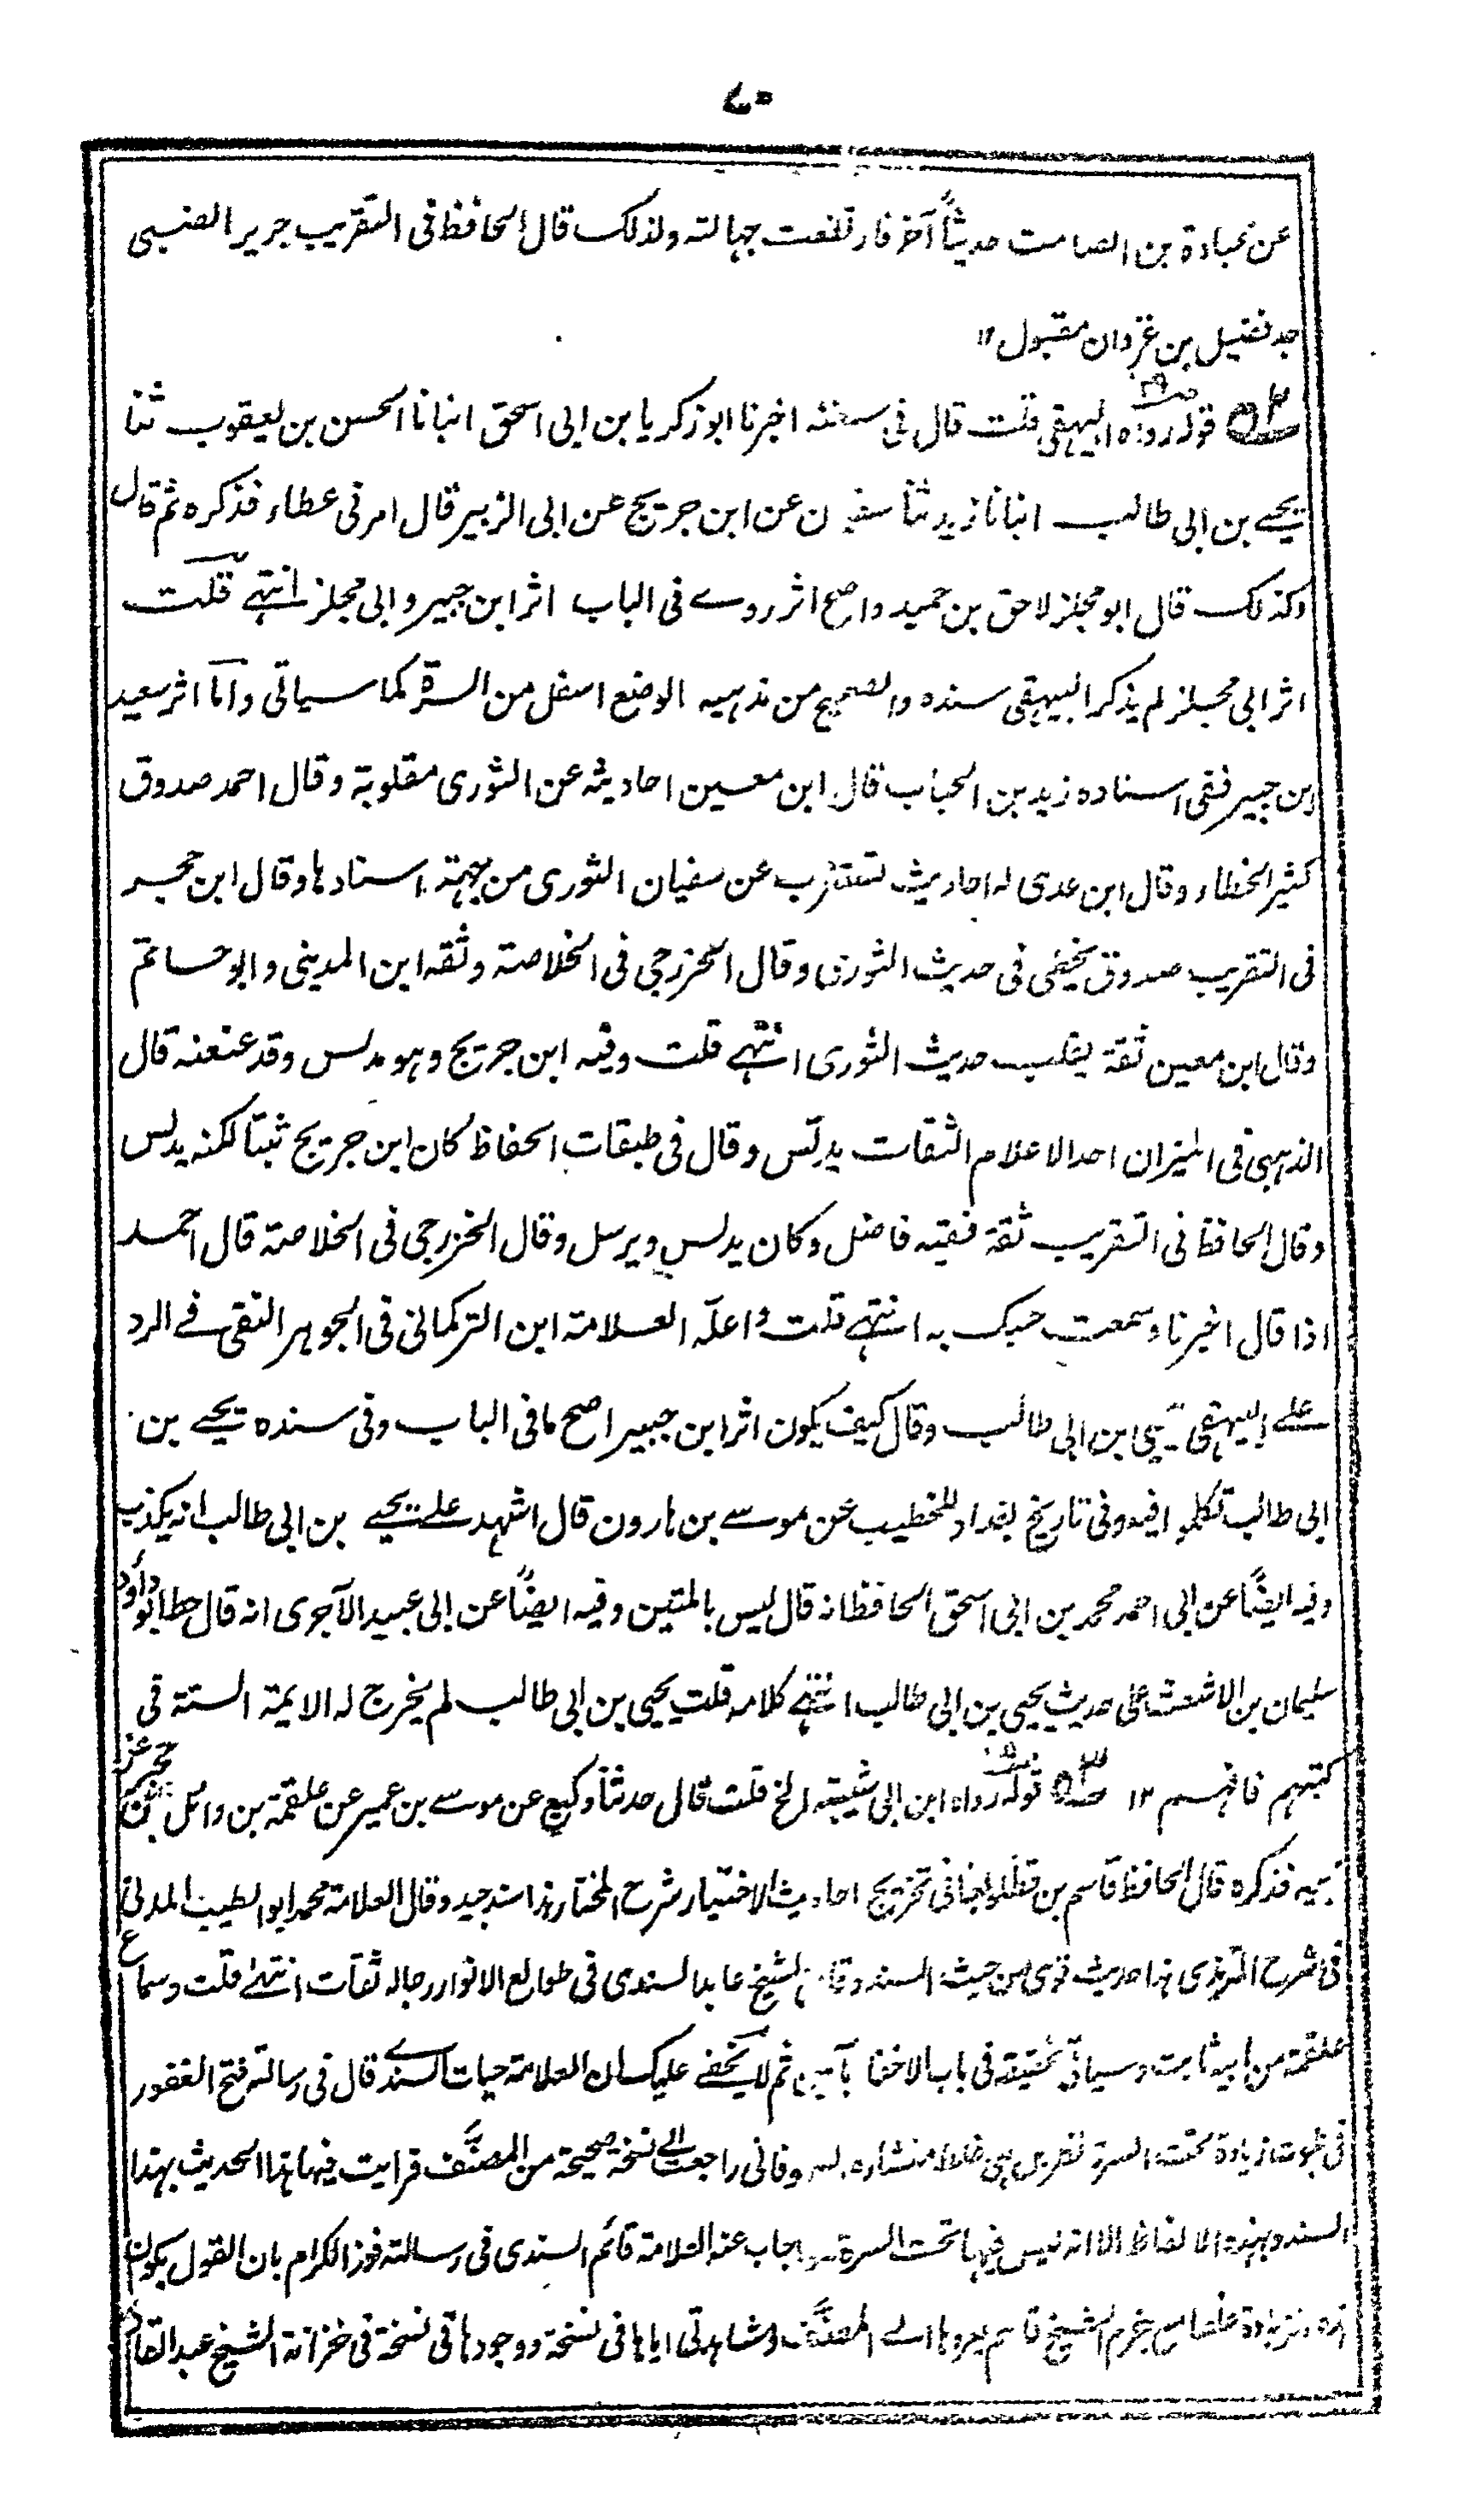 ٧٠
عن عبادة بن الصامت حديثاً آخر فارتفعت جهالته ولذلك قال الحافظ فى التقريب جرير الضبى
جد فضيل بن غزوان مقبول ١٢
قوله رواه البيهقى قلت قال فى سننه اخبرنا ابو زكريا بن ابى اسحق انبانا الحسن بن يعقوب ثنا
يحيے بن ابى طالب انبانا زيد ثنا سفين عن ابن جريج عن ابى الزبير قال امرنى عطاء فذكره ثم قال
وكذلك قال ابو مجلز لاحق بن حميد واصح اثر روے فى الباب اثر ابن جبير وابى مجلز انتهے قلت
اثر ابى مجلز لم يذكر البيهقى سنده والصحيح من مذهبه الوضع اسفل من السرة كما سياتى واما اثر سعيد
ابن جبير ففى اسناده زيد بن الحباب قال ابن معين احاديثه عن الثورى مقلوبة وقال احمد صدوق
كثير الخطاء وقال ابن عدى له احاديث تستغرب عن سفيان الثورى من جهة اسنادها وقال ابن حجر
فى التقريب صدوق يخطى فى حديث الثورى وقال الخزرجى فى الخلاصة وثقه ابن المدينى وابو حاتم
وقال ابن معين ثقة يقلب حديث الثورى انتهے قلت وفيه ابن جريج وهو مدلس وقد عنعنه قال
الذهبى فى الميزان احد الاعلام الثقات يدلّس وقال فى طبقات الحفاظ كان ابن جريج ثبتا لكنه يدلس
وقال الحافظ فى التقريب ثقة فقيه فاضل وكان يدلس ويرسل وقال الخزرجى فى الخلاصة قال احمد
اذا قال اخبرنا وسمعت حسبك به انتهے قلت واعلّه العلامة ابن التركمانى فى الجوهر النقى فے الرد
علے البيهقى بيحيى ابن ابى طالب وقال كيف يكون اثر ابن جبير اصح مافى الباب وفى سنده يحيے بن
ابى طالب تكلموا فيه وفى تاريخ بغداد للخطيب عن موسے بن هارون قال اشهد علے يحيے بن ابى طالب انه يكذب
وفيه ايضًا عن ابى احمد محمد بن ابى اسحق الحافظ انه قال ليس بالمتين وفيه ايضًا عن ابى عبيد الآجرى انه قال خط ابو داؤد
سليمان بن الاشعث على حديث يحيى بن ابى طالب انتهے كلامه قلت يحيى بن ابى طالب لم يخرج له الايمة الستة فى
كتبهم فافهم ١٢ قوله رواه ابن ابى شيبة الخ قلت قال حدثنا وكيع عن موسے بن عمير عن علقمة بن وائل بن حجر عن
ابيه فذكره قال الحافظ قاسم بن قطلوبغا فى تخريج احاديث الاختيار شرح المختار هذا سند جيد وقال العلامة محمد ابو الطيب المدنى
فى شرح الترمذى هذا حديث قوى من حيث السند وقال الشيخ عابد السندى فى طوالع الانوار رجاله ثقات انتهے قلت وسماع
علقمة من ابيه ثابت وسياتى تحقيقه فى باب الاخفا بآمين ثم لا يخفے عليك ان العلامة حيات السندے قال فى رسالته فتح الغفور
فى ثبوت زيادة تحت السرة نظر بل هى غلط منشاره السهو فانى راجعت الے نسخة صحيحة من المصنَّف فرايت فيها هذا الحديث بهذا
السند وبهذه الالفاظ الا انه ليس فيها تحت السرة واجاب عنه العلامة قائم السندى فى رسالته فوز الكرام بان القول بكون
هذه الزيادة غلطا مع جزم الشيخ قاسم بعزوها الے المصنَّف ومشاهدتى اياها فى نسخة ووجودها فى نسخة فى خزانة الشيخ عبد القادر